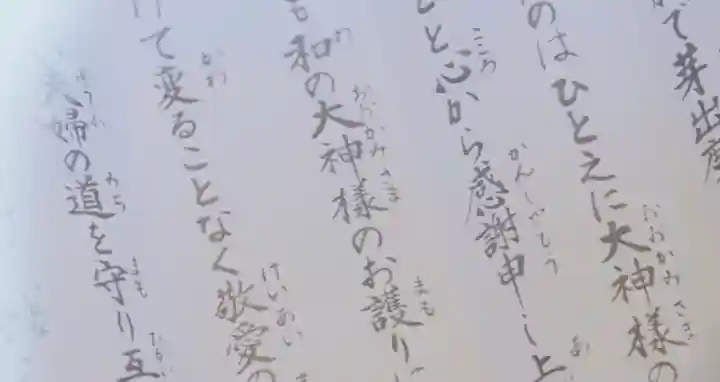 で芽出度
のはひとえに大神様の
と心から感謝申し上
も和の大神様のお護りに
けて変ることなく敬愛の
夫婦の道を守り互